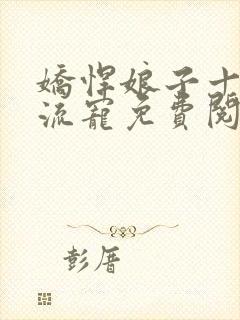 嬌悍娘子十
流寵免費閱
彭厝